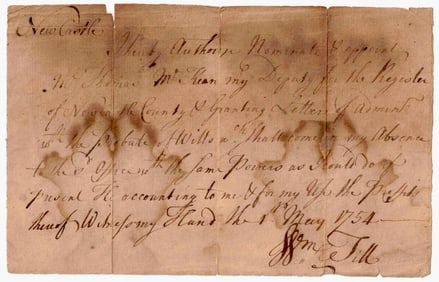 New Castle
I hereby Authorise Nominate & appoint
Mr. Thomas McKean my Deputy for the Register
of Newcastle County & Granting Letters of Adminis
wth the Probate of Wills wch Shall come in my Absence
to the sd Office wth the same Powers as I could do if
present He accounting to me & for my Use the Profits
thereof Witness my Hand the 1st May 1754
Wm Till